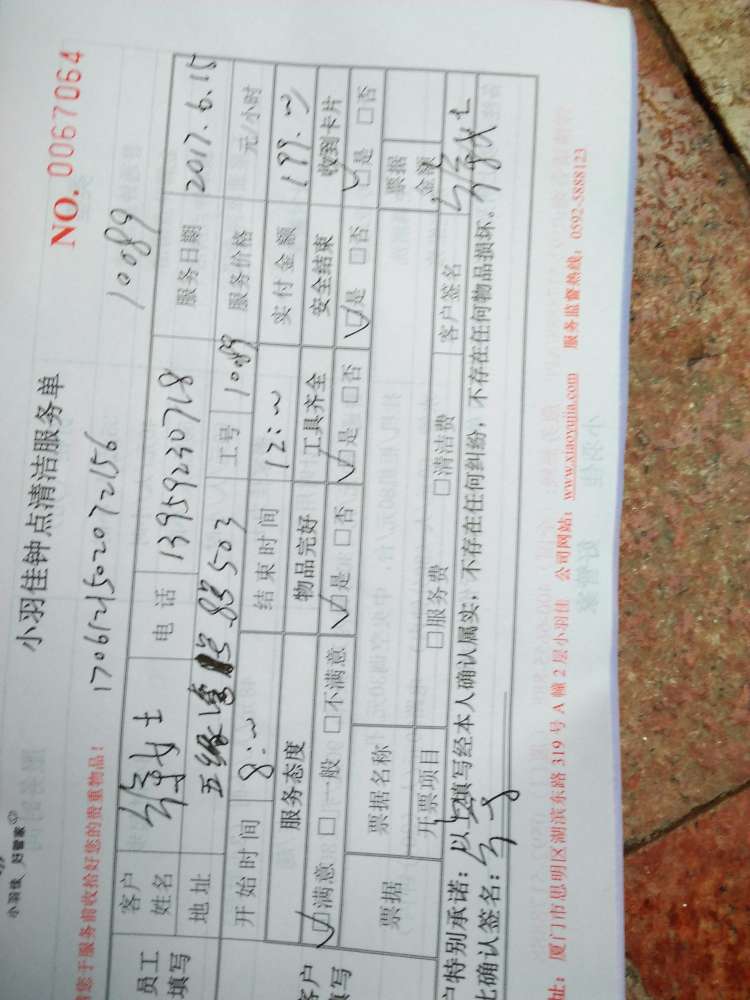 小羽佳 好管家
小羽佳钟点清洁服务单
NO. 0067064
10089
您于服务前收拾好您的贵重物品！
员工
填写
客户
姓名
女士
电 话
13959230718
服务日期
2017.6.15
地址
503
工号
1089
服务价格
元/小时
开始时间
8:00
结束时间
12:00
实付金额
199.00
服务态度
物品完好
工具齐全
安全结束
收到卡片
□满意 □一般 □不满意
□是 □否
□是 □否
□是 □否
□是 □否
票据
票据名称
票据
金额
开票项目
□服务费
□清洁费
客户签名
女士
户特别承诺：以上填写经本人确认属实，不存在任何纠纷，不存在任何物品损坏。
比确认签名：
址：厦门市思明区湖滨东路 319 号 A 幢 2 层小羽佳 公司网站：www.xiaoyujia.com 服务监督热线：0592-5888123